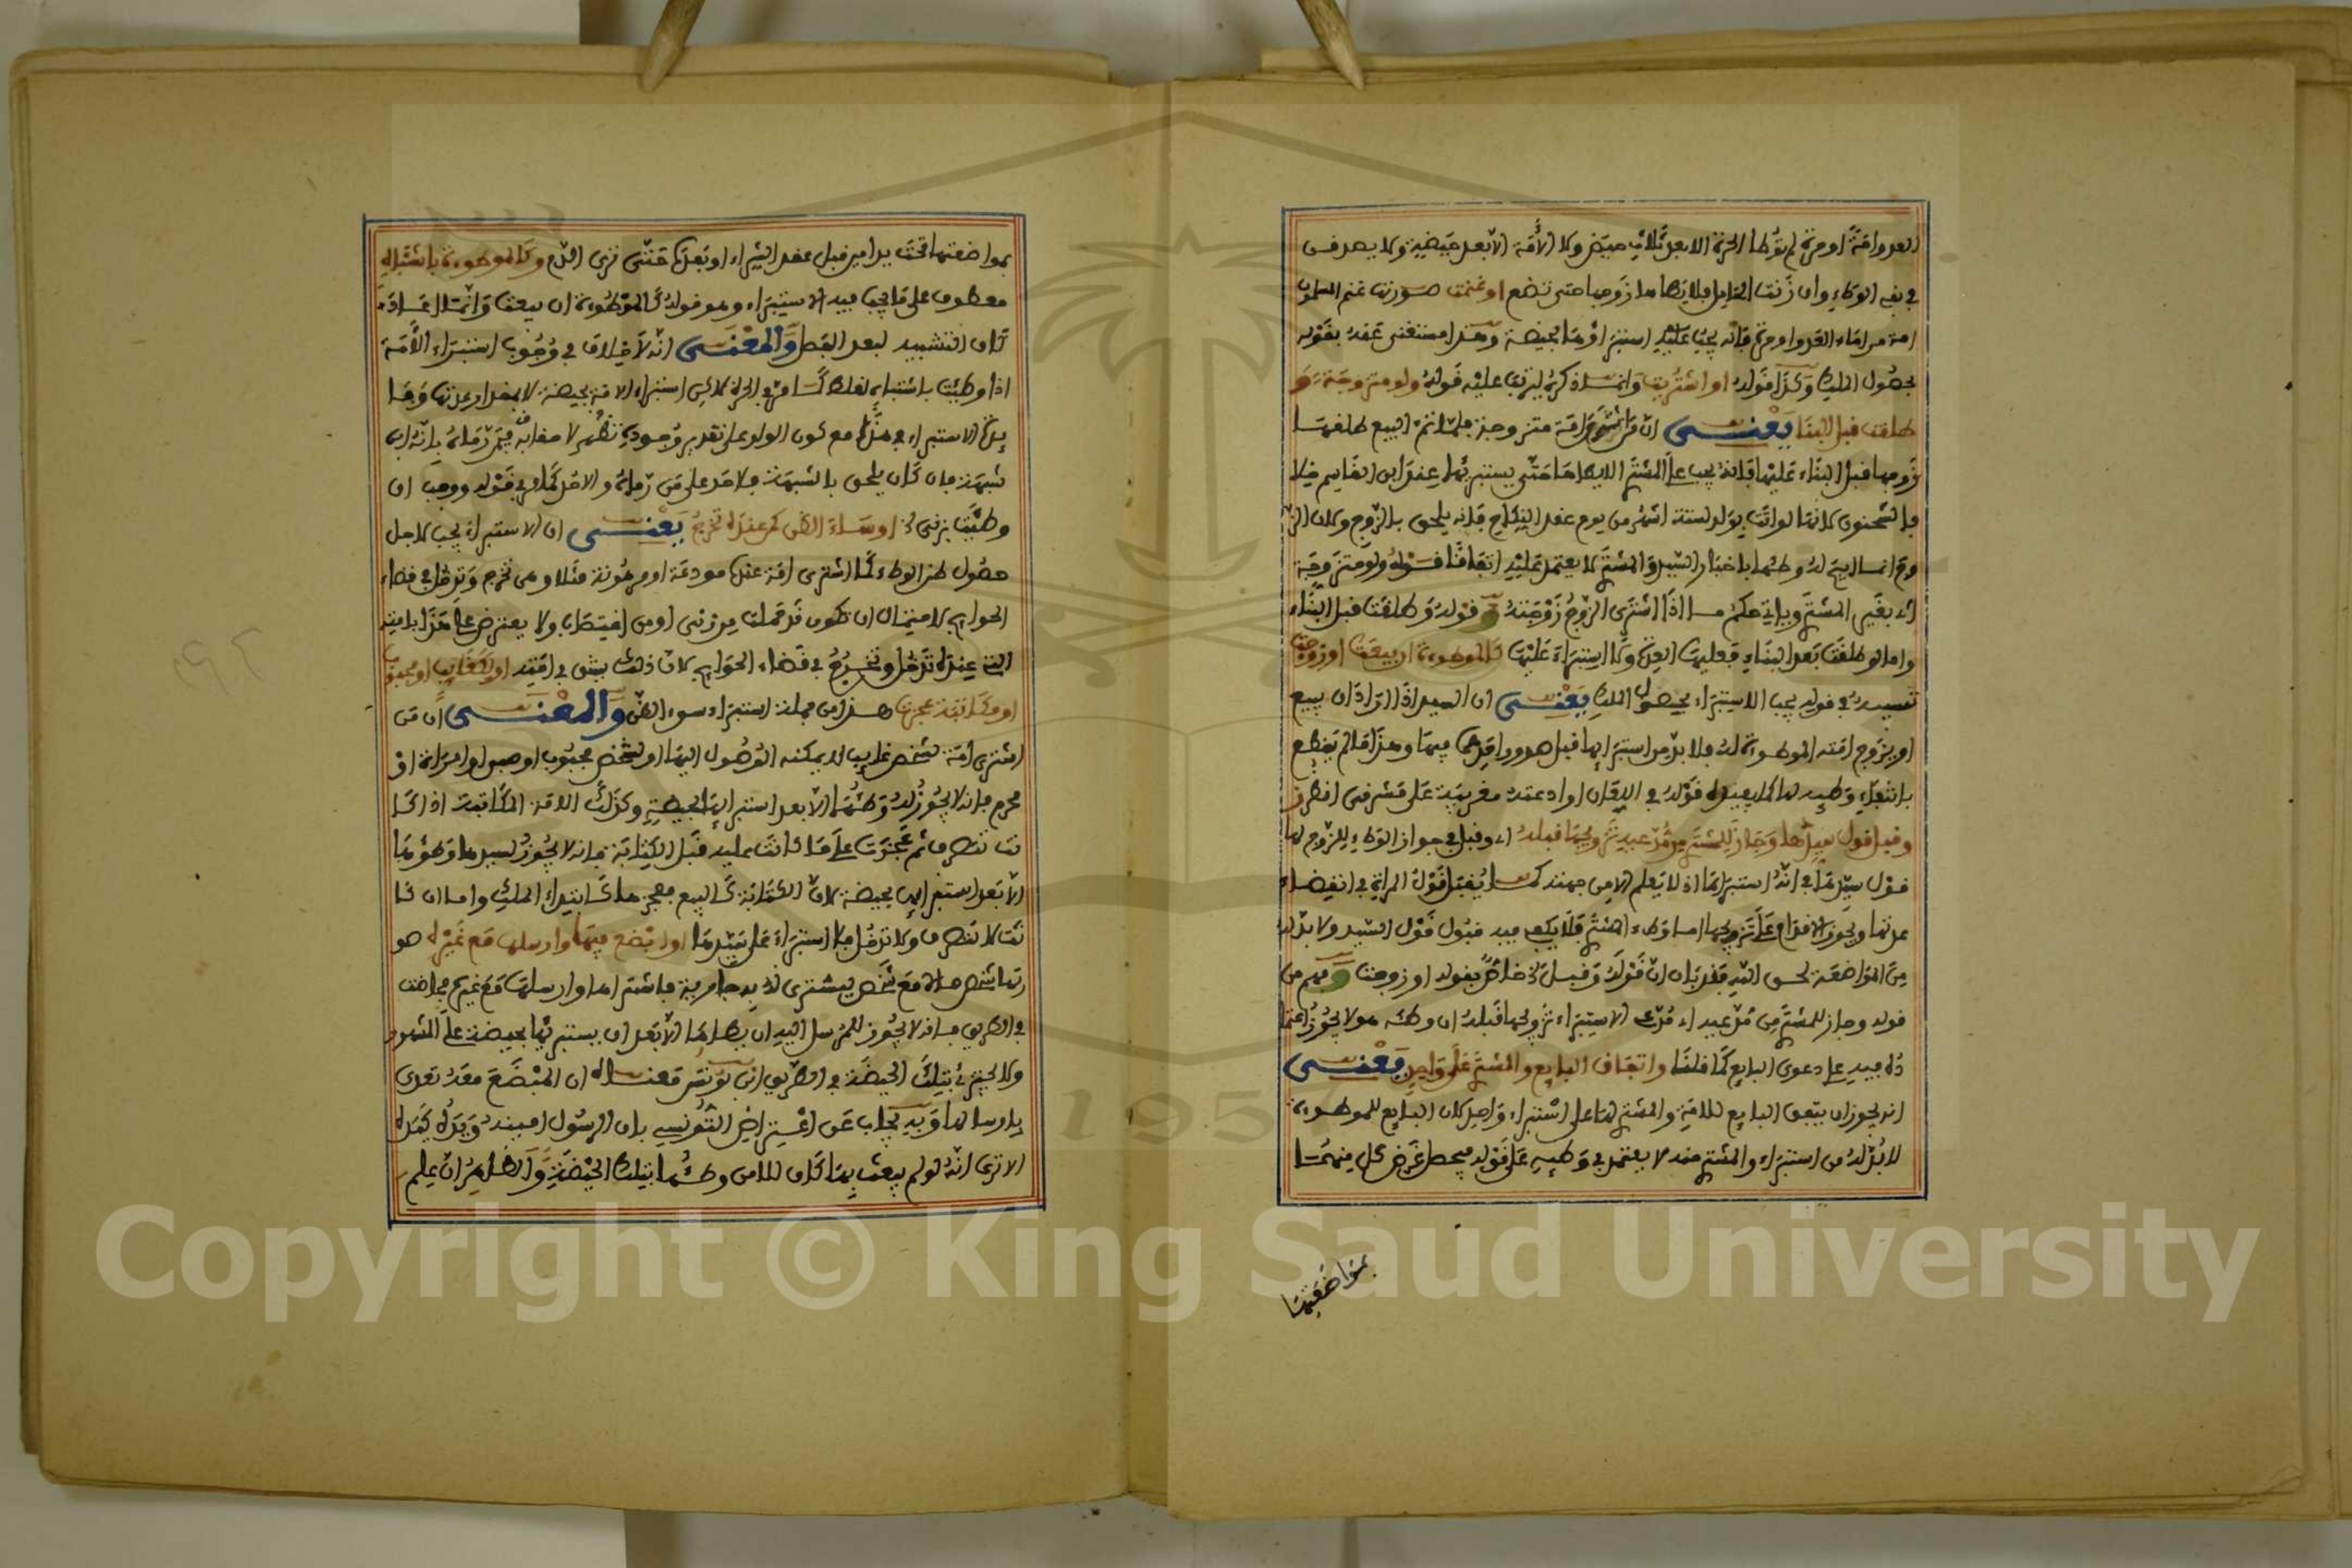 العدو امة او حرة لم توطا الحرة الا بعد ثلاث حيض ولا الأمة الا بعد حيضة ولا يصدقن
في نفي الوطء وان زنت الحامل فلا يطأها زوجها حتى تضع او غنمت صورتها غنم المسلمون
امة من اماء العدو او حرة فانه يجب عليه استبراؤها بحيضة وهذا مستغنى عنه بقوله
بحصول الملك وكذا قوله او اشتريت وانما ذكره ليرتب عليه قوله ولو متزوجة
طلقت قبل البنا يعني ان من اشترى امة متزوجة فلما تم البيع طلقها
زوجها قبل البناء عليها فانه يجب على المشتر الا يطأها حتى يستبرئها عند ابن القاسم خلافا
لسحنون لانها لو اتت بولد لستة اشهر من يوم عقد النكاح فانه يلحق بالزوج ولان الزوج
انما ابيح له وطئها باخبار السيد والمشتر لا يعتمد عليه اتفاقا قوله ولو متزوجة
اي بغير المشتر وياتي حكم ما اذا اشترى الزوج زوجته وقوله وطلقت قبل البناء
واما لو طلقت بعد البناء فعليها العدة ولا استبراء عليها كالموطوءة ان بيعت او زوجت
تشبيه في قوله يجب الاستبراء بحصول الملك يعني ان السيد اذا اراد ان يبيع
او يزوج امته الموطوءة له فلا بد من استبرائها قبل صدور احدهما فيها وهذا ما لم يقطع
بانتفاء وطيه لها كما يفيده قوله في اللعان او ادعته مغربية على مشرقي
وقبل قول سيدها وجاز للمشتر من مدعيه تزويجها قبله اي وقبل في جواز الوطء للزوج لها
قول سيدها في انه استبرأها اذ لا يعلم الا من جهته كما يقبل قول المراة في انقضاء
عدتها ويجوز الاقدام على تزويجها اما وطء المشتر فلا يكفي فيه قبول قول السيد ولا بد له
من المواضعة لحق الله فقد بان ان قوله وقبل خاص بقوله او زوجت وفهم من
قوله وجاز للمشتر من مدعيه اي مدعي الاستبراء تزويجها قبله ان وطئه هو لا يجوز اعتما
ده فيه على دعوى البايع كما قلنا واتفاق البايع والمشتر على واحد يعني
انه يجوز ان يتفق البايع للامة والمشتر لها على استبراء واحد لان البايع للموطوءة
لا بد له من استبراء والمشتر منه لا يعتمد في وطيه على قوله فيحصل غرض كل منهما
بمواضعتها
بمواضعتها تحت يد امين قبل عقد الشراء او بعده حتى ترى الدم وكالموطوءة باشتباه
معطوف على ما يجب فيه الاستبراء وهو قوله كالموطوءة ان بيعت وانما اعاد
كاف التشبيه لبعد الفصل والمعنى انه لا خلاف في وجوب استبراء الأمة
اذا وطيت باشتباه لغلط كما مر في الحرة لاكن استبراء الامة بحيضة لا بمقدار عدتها وفا
يدة الاستبراء في هذا مع كون الولد على تقدير وجوده تظهر
شبهة فان كان يلحق بالشبهة فلا حد على من رماه والا حد كما مر في قوله ووجب ان
وطيت بزنى او ساء الظن كمن عنده تخرج يعني ان الاستبراء يجب لاجل
حصول ظن الوطء كما اشترى امة عنده مودعة او مرهونة مثلا وهي تخرج وتدخل في قضاء
الحوايج لاحتمال ان تكون قد حملت من زنى او من اغتصاب ولا يعترض على هذا بامته
التي عنده تدخل وتخرج في قضاء الحوايج لان ذلك يشق في امته او لكغايب او مجبوب
او مكاتبة عجزت هذا من جملة استبراء سوء الظن والمعنى ان من
اشترى امة لشخص غايب لا يمكنه الوصول اليها او لشخص مجبوب او صبي او امراة او
محرم فانه لا يجوز له وطئها الا بعد استبرائها بحيضة وكذلك الامة المكاتبة اذا كا
نت تتصرف ثم عجزت على ما كانت عليه قبل الكتابة فانه لا يجوز لسيدها وطؤها
الا بعد استبرائها بحيضة لان الكتابة كالبيع فعجزها كابتداء الملك واما ان كا
نت لا تتصرف ولا تدخل فلا استبراء على سيدها او ابضع فيها وارسلها مع غيره هو
ربما شخص مالا مع شخص ليشتري له به جارية فاشتراها وارسلها مع غيره فحاضت
في الطريق فانه لا يجوز للمرسل اليه ان يطأها الا بعد ان يستبرئها بحيضة على المشهور
ولا يجتزئ بتلك الحيضة في الطريق ابن يونس معناه ان المبضع معه تعدى
بارسالها وبه يجاب عن اعتراض التونسي بان الرسول امينه ويده كيده
الا ترى انه لو لم يبعث بها كان للامر وطئها بتلك الحيضة والظاهر ان علم